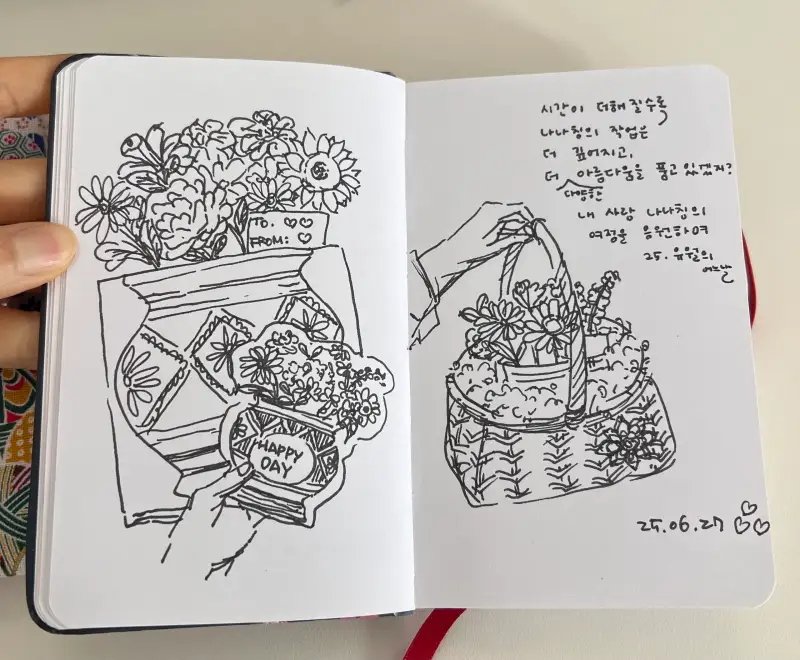 TO. ♡♡
FROM: ♡
HAPPY
DAY
시간이 더해 질수록
나나칭의 작업은
더 깊어지고,
더 아름다움을 품고 있겠지?
다양한
내 사랑 나나칭의
여정을 응원하며
25. 유월의
어느날
25.06.27 ♡♡♡